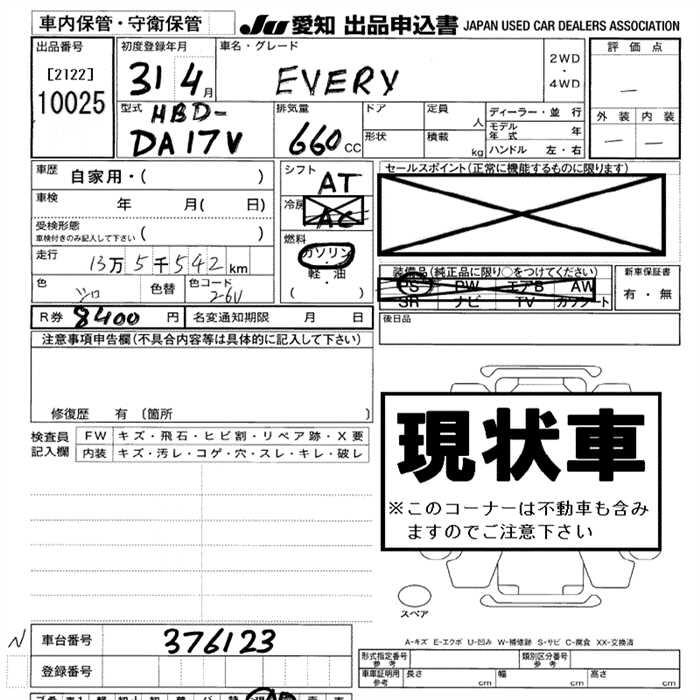 車内保管・守衛保管
JU 愛知 出品申込書 JAPAN USED CAR DEALERS ASSOCIATION
出品番号
[2122]
10025
初度登録年月
31 4 月
車名・グレード
EVERY
2WD
・
4WD
評価点
—
外装 内装
— —
型式
HBD-
DA17V
排気量
660 CC
ドア
形状
定員 人
積載 kg
ディーラー・並行
モデル年式 年
ハンドル 左・右
車歴 自家用・( )
車検 年 月( 日)
受検形態
車検付きのみ記入して下さい ( )
走行 13万5千542km
色 シロ
色替
色コード 26U
シフト AT
冷房 AC
燃料
ガソリン
・
軽油
( )
セールスポイント(正常に機能するものに限ります)
装備品(純正品に限り○をつけてください)
PS PW エアB AW
SR ナビ TV カワシート
新車保証書
有・無
R券 8400 円
名変通知期限 月 日
後日品
注意事項申告欄(不具合内容等は具体的に記入して下さい)
修復歴 有 〔箇所 〕
検査員記入欄
FW キズ・飛石・ヒビ割・リペア跡・X要
内装 キズ・汚レ・コゲ・穴・スレ・キレ・破レ
現状車
※このコーナーは不動車も含み
ますのでご注意下さい
スペア
A-キズ E-エクボ U-凹み W-補修跡 S-サビ C-腐食 XX-交換済
N
車台番号 376123
登録番号
形式指定番号
参考
類別区分番号
参考
車庫証明用
参考
長さ cm
幅 cm
高さ cm